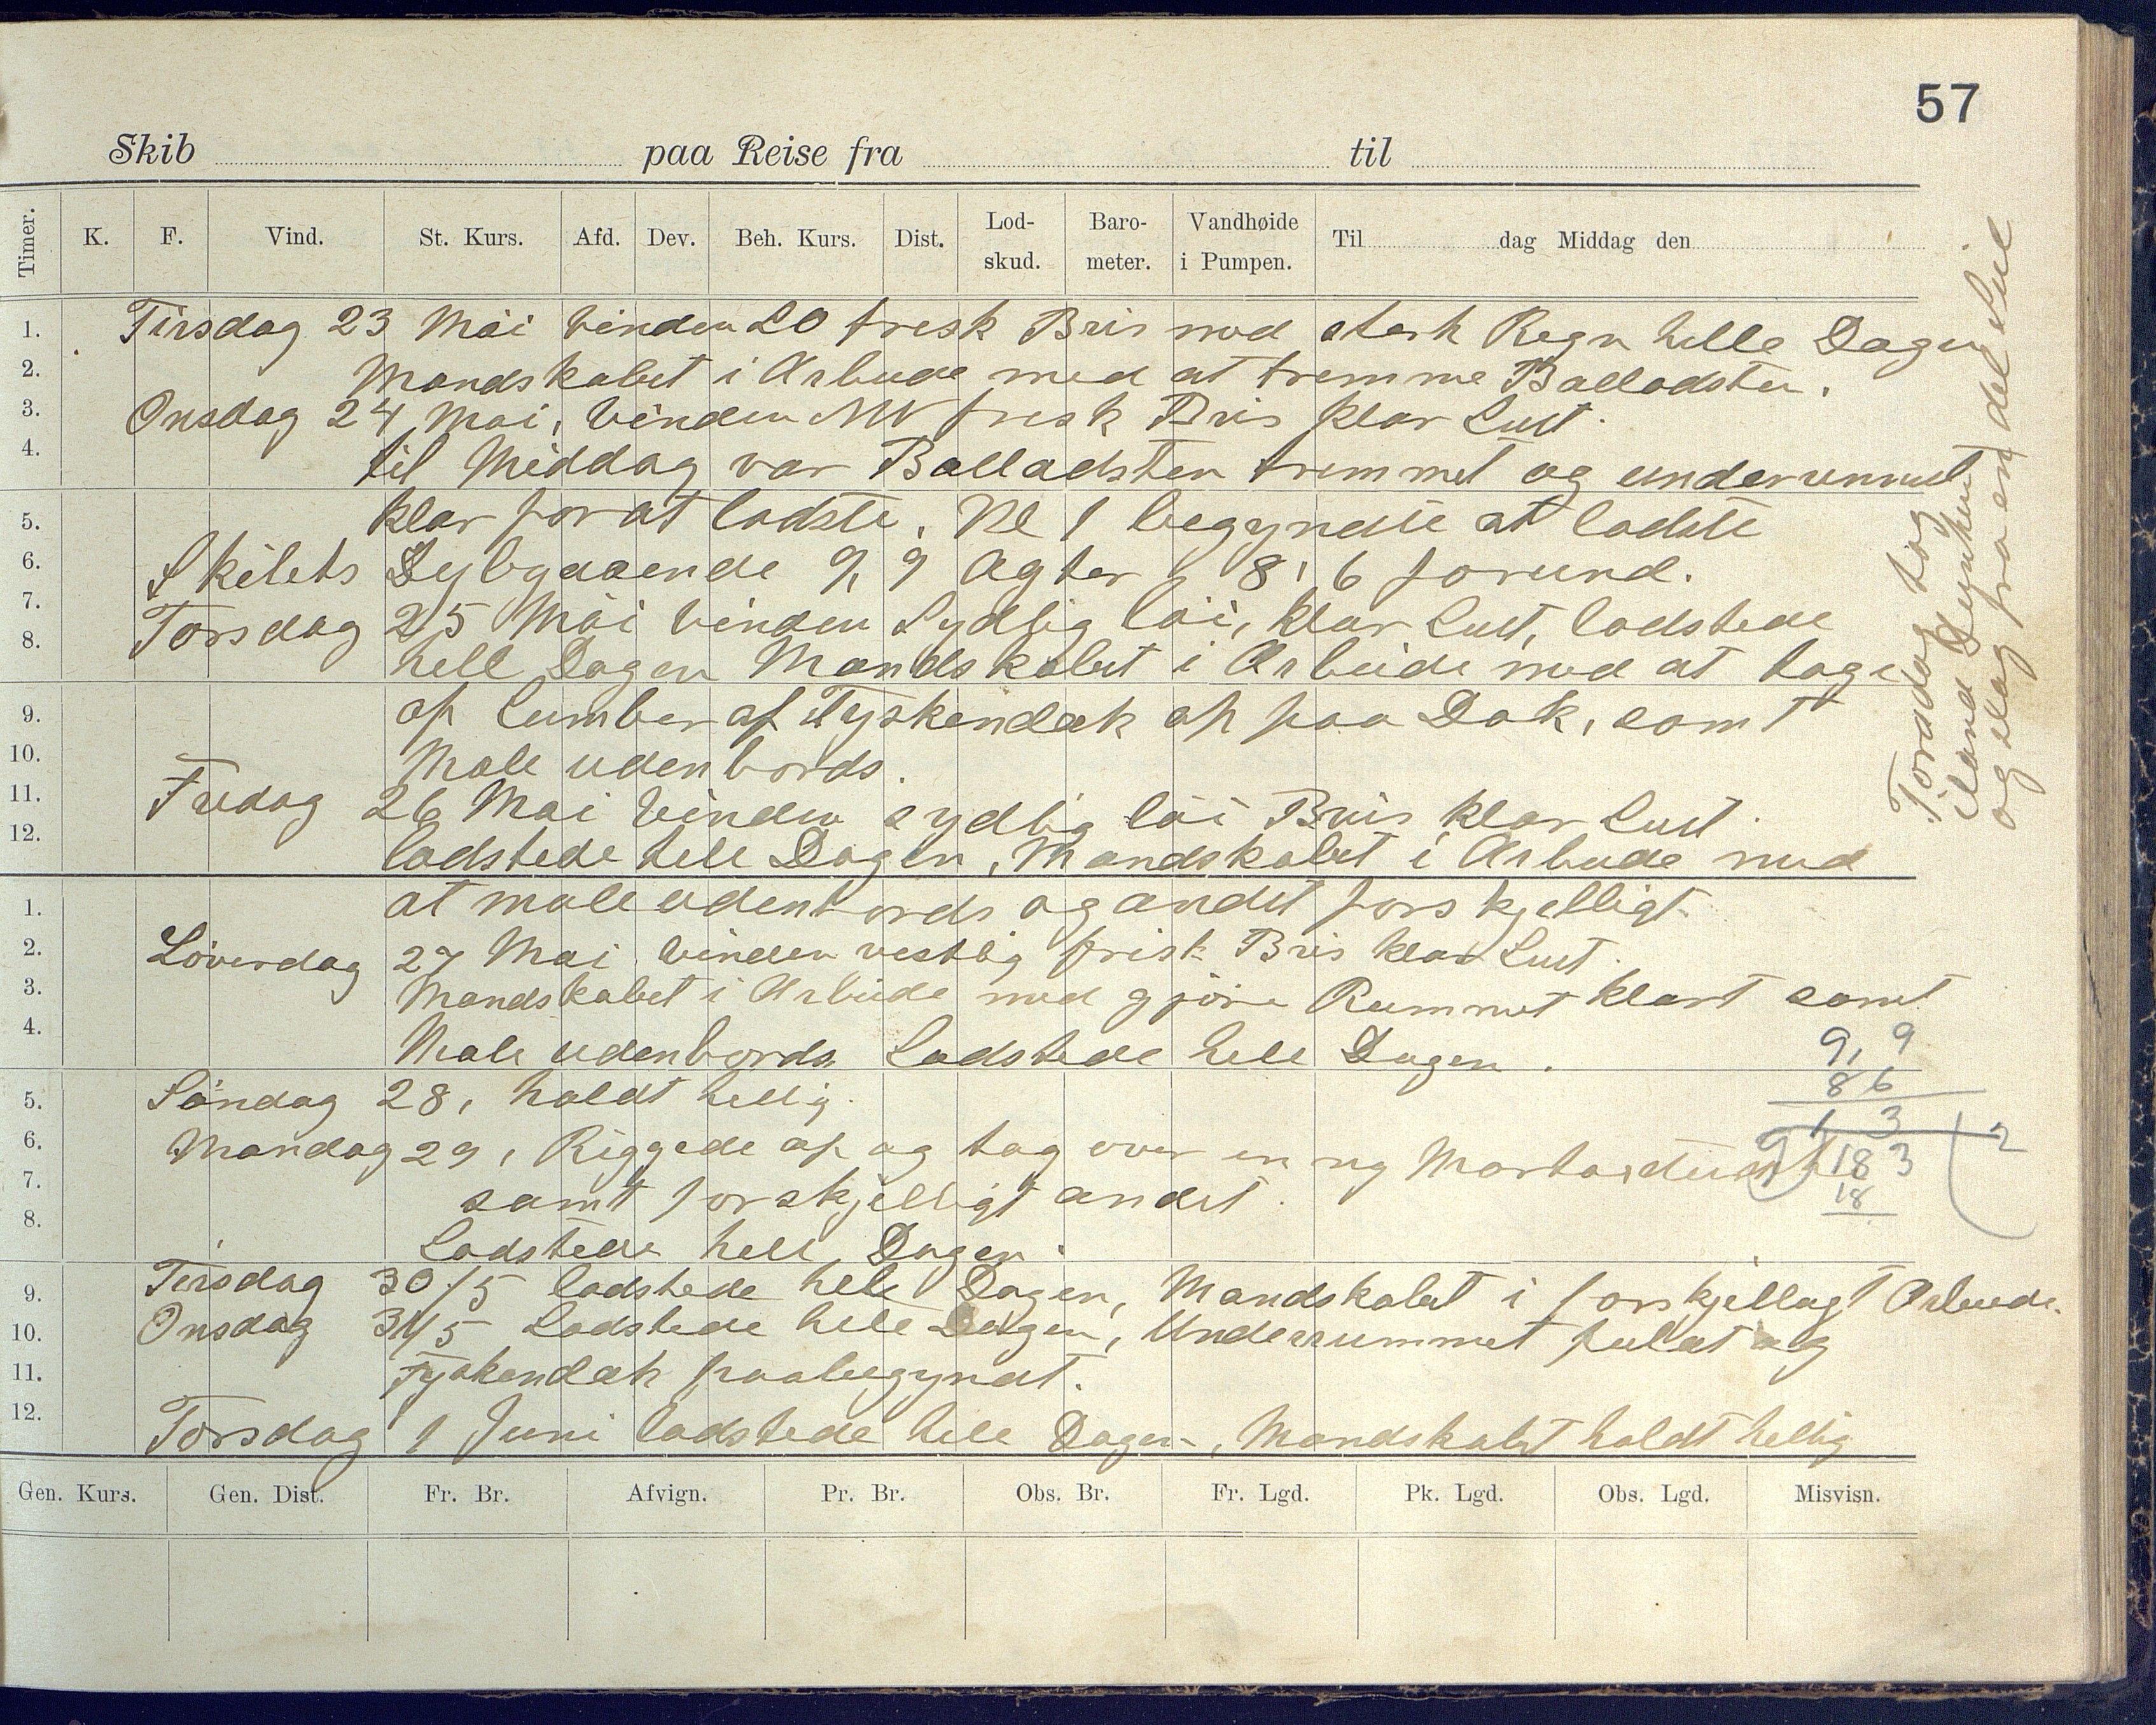 57
Skib paa Reise fra til
Timer. K. F. Vind. St. Kurs. Afd. Dev. Beh. Kurs. Dist. Lod-skud. Baro-meter. Vandhøide i Pumpen. Til dag Middag den
1. Tirsdag 23 Mai Vinden SO fresk Bris med sterk Regn helle Dagen
2. Mandskabet i Arbeide med at tremme Balladsten.
3. Onsdag 24 Mai, Vinden NW fresk Bris klar Luft.
4. til Middag var Balladsten tremmet og underummet
5. klar for at ladste. Kl 1 begyndte at ladste
6. Skibets Dybgaaende 9,9 Agter, 8,6 forund.
7. Torsdag 25 Mai Vinden Sydlig löi, klar Luft, ladstede
8. hell Dagen Mandskabet i Arbeide med at tage
9. op Lumber af Tyskendæk op paa Dæk, samt
10. Male udenbords.
11. Fredag 26 Mai Vinden sydlig löi Bris klar Luft.
12. ladstede hele Dagen, Mandskabet i Arbeide med
1. at male udenbords og andet forskjelligt
2. Löverdag 27 Mai Vinden vestlig frisk Bris klar Luft.
3. Mandskabet i Arbeide med gjöre Rummet klart samt
4. Male udenbords Ladstede hele Dagen.
5. Söndag 28, holdt hellig.
6. Mandag 29, Riggede op og tog over en ny
7. samt forskjelligt andet.
8. Ladstede hele Dagen.
9. Tirsdag 30/5 ladstede hele Dagen, Mandskabet i forskjellagt Arbeide.
10. Onsdag 31/5 Ladstede hele Dagen, Underrummet fuldt og
11. Tyskendæk paabegyndt.
12. Torsdag 1 Juni ladstede hele Dagen, Mandskabet holdt hellig
Torsdag tog
iland
og slog fra en del Seil
9, 9
8 6
1 3
9 183 2
18
Gen. Kurs. Gen. Dist. Fr. Br. Afvign. Pr. Br. Obs. Br. Fr. Lgd. Pk. Lgd. Obs. Lgd. Misvisn.